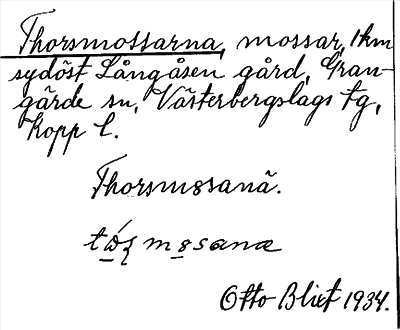 Thorsmossarna, mossar, 1 km
sydöst Långåsen gård, Gran-
gärde sn, Västerbergslags tg,
Kopp. l.
Thorsmosanä.
Otto Blixt 1934.